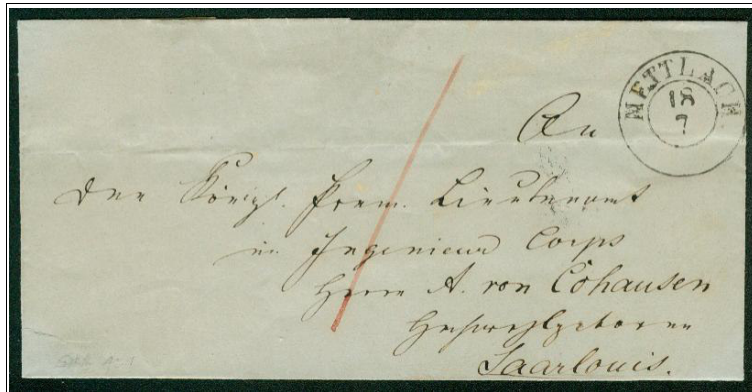 METTLACH
18
7
An
den Königl. Prem. Lieutenant
im Ingenieur Corps
Herrn A. von Cohausen
Hochwohlgeboren
Saarlouis.